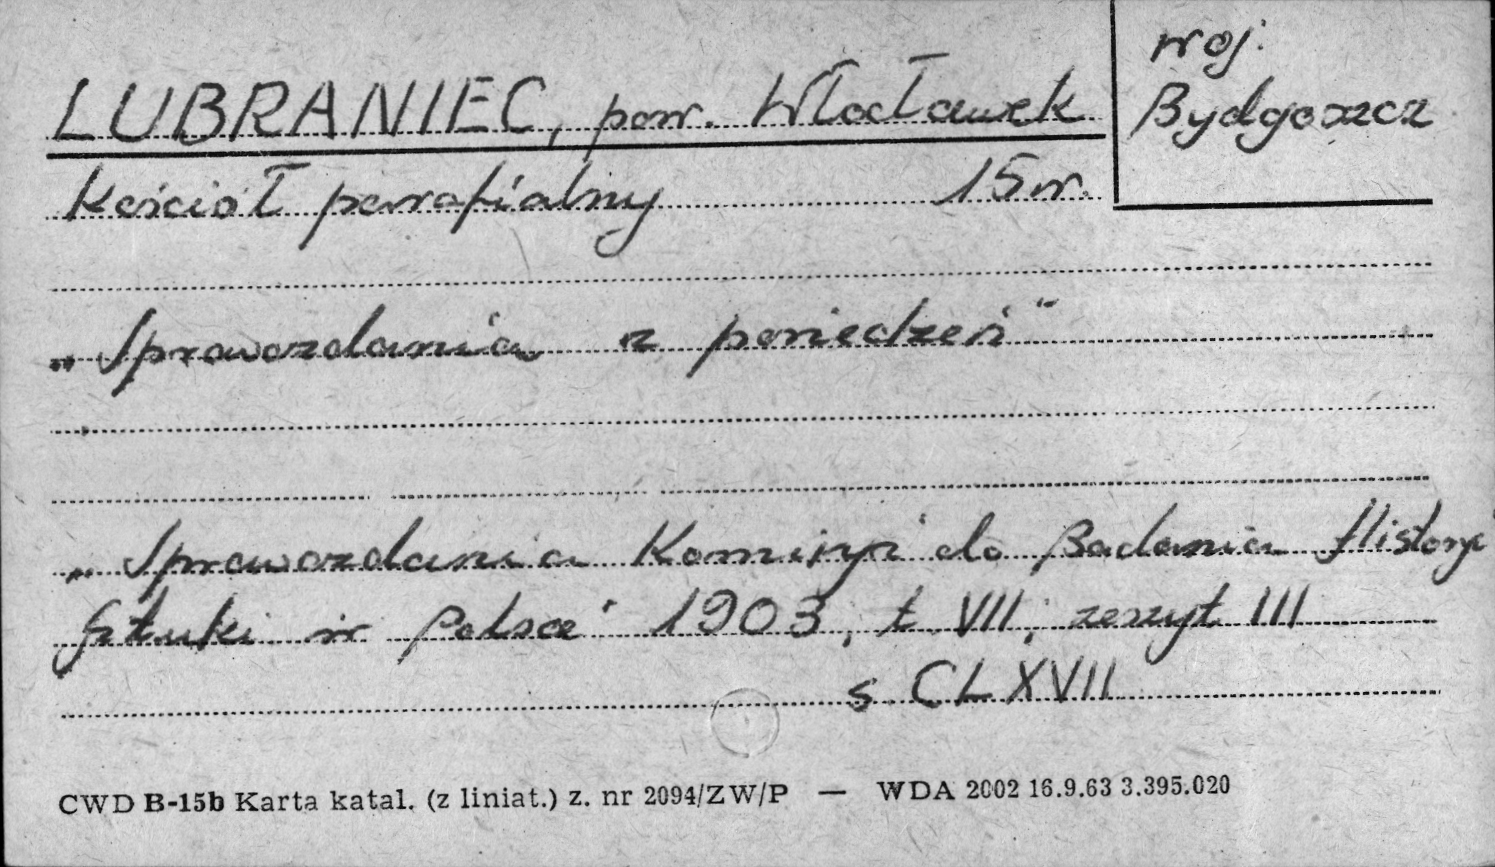 LUBRANIEC, pow. Włocławek
woj. Bydgoszcz
Kościół parafialny 15 w.
„Sprawozdania z posiedzeń"
„Sprawozdania Komisyi do Badania Historyi
Sztuki w Polsce" 1903, t. VII, zeszyt III
s. CLXVII
CWD B-15b Karta katal. (z liniat.) z. nr 2094/ZW/P — WDA 2002 16.9.63 3.395.020